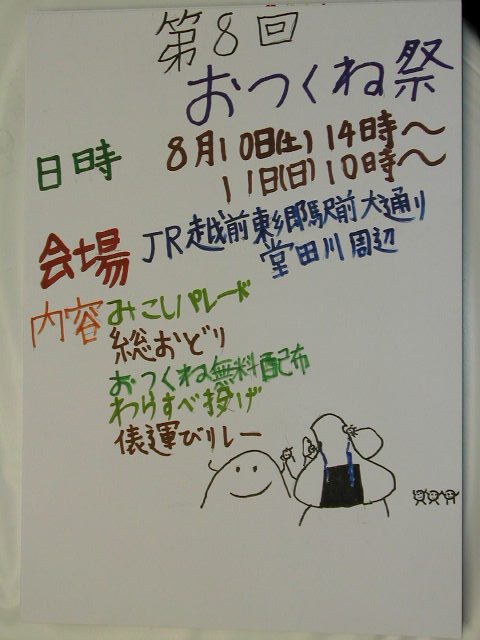 第8回
おつくね祭
日時 8月10日(土)14時～
11日(日)10時～
会場 JR越前東郷駅前大通り
堂田川周辺
内容 みこしパレード
総おどり
おつくね無料配布
わらすべ投げ
俵運びリレー